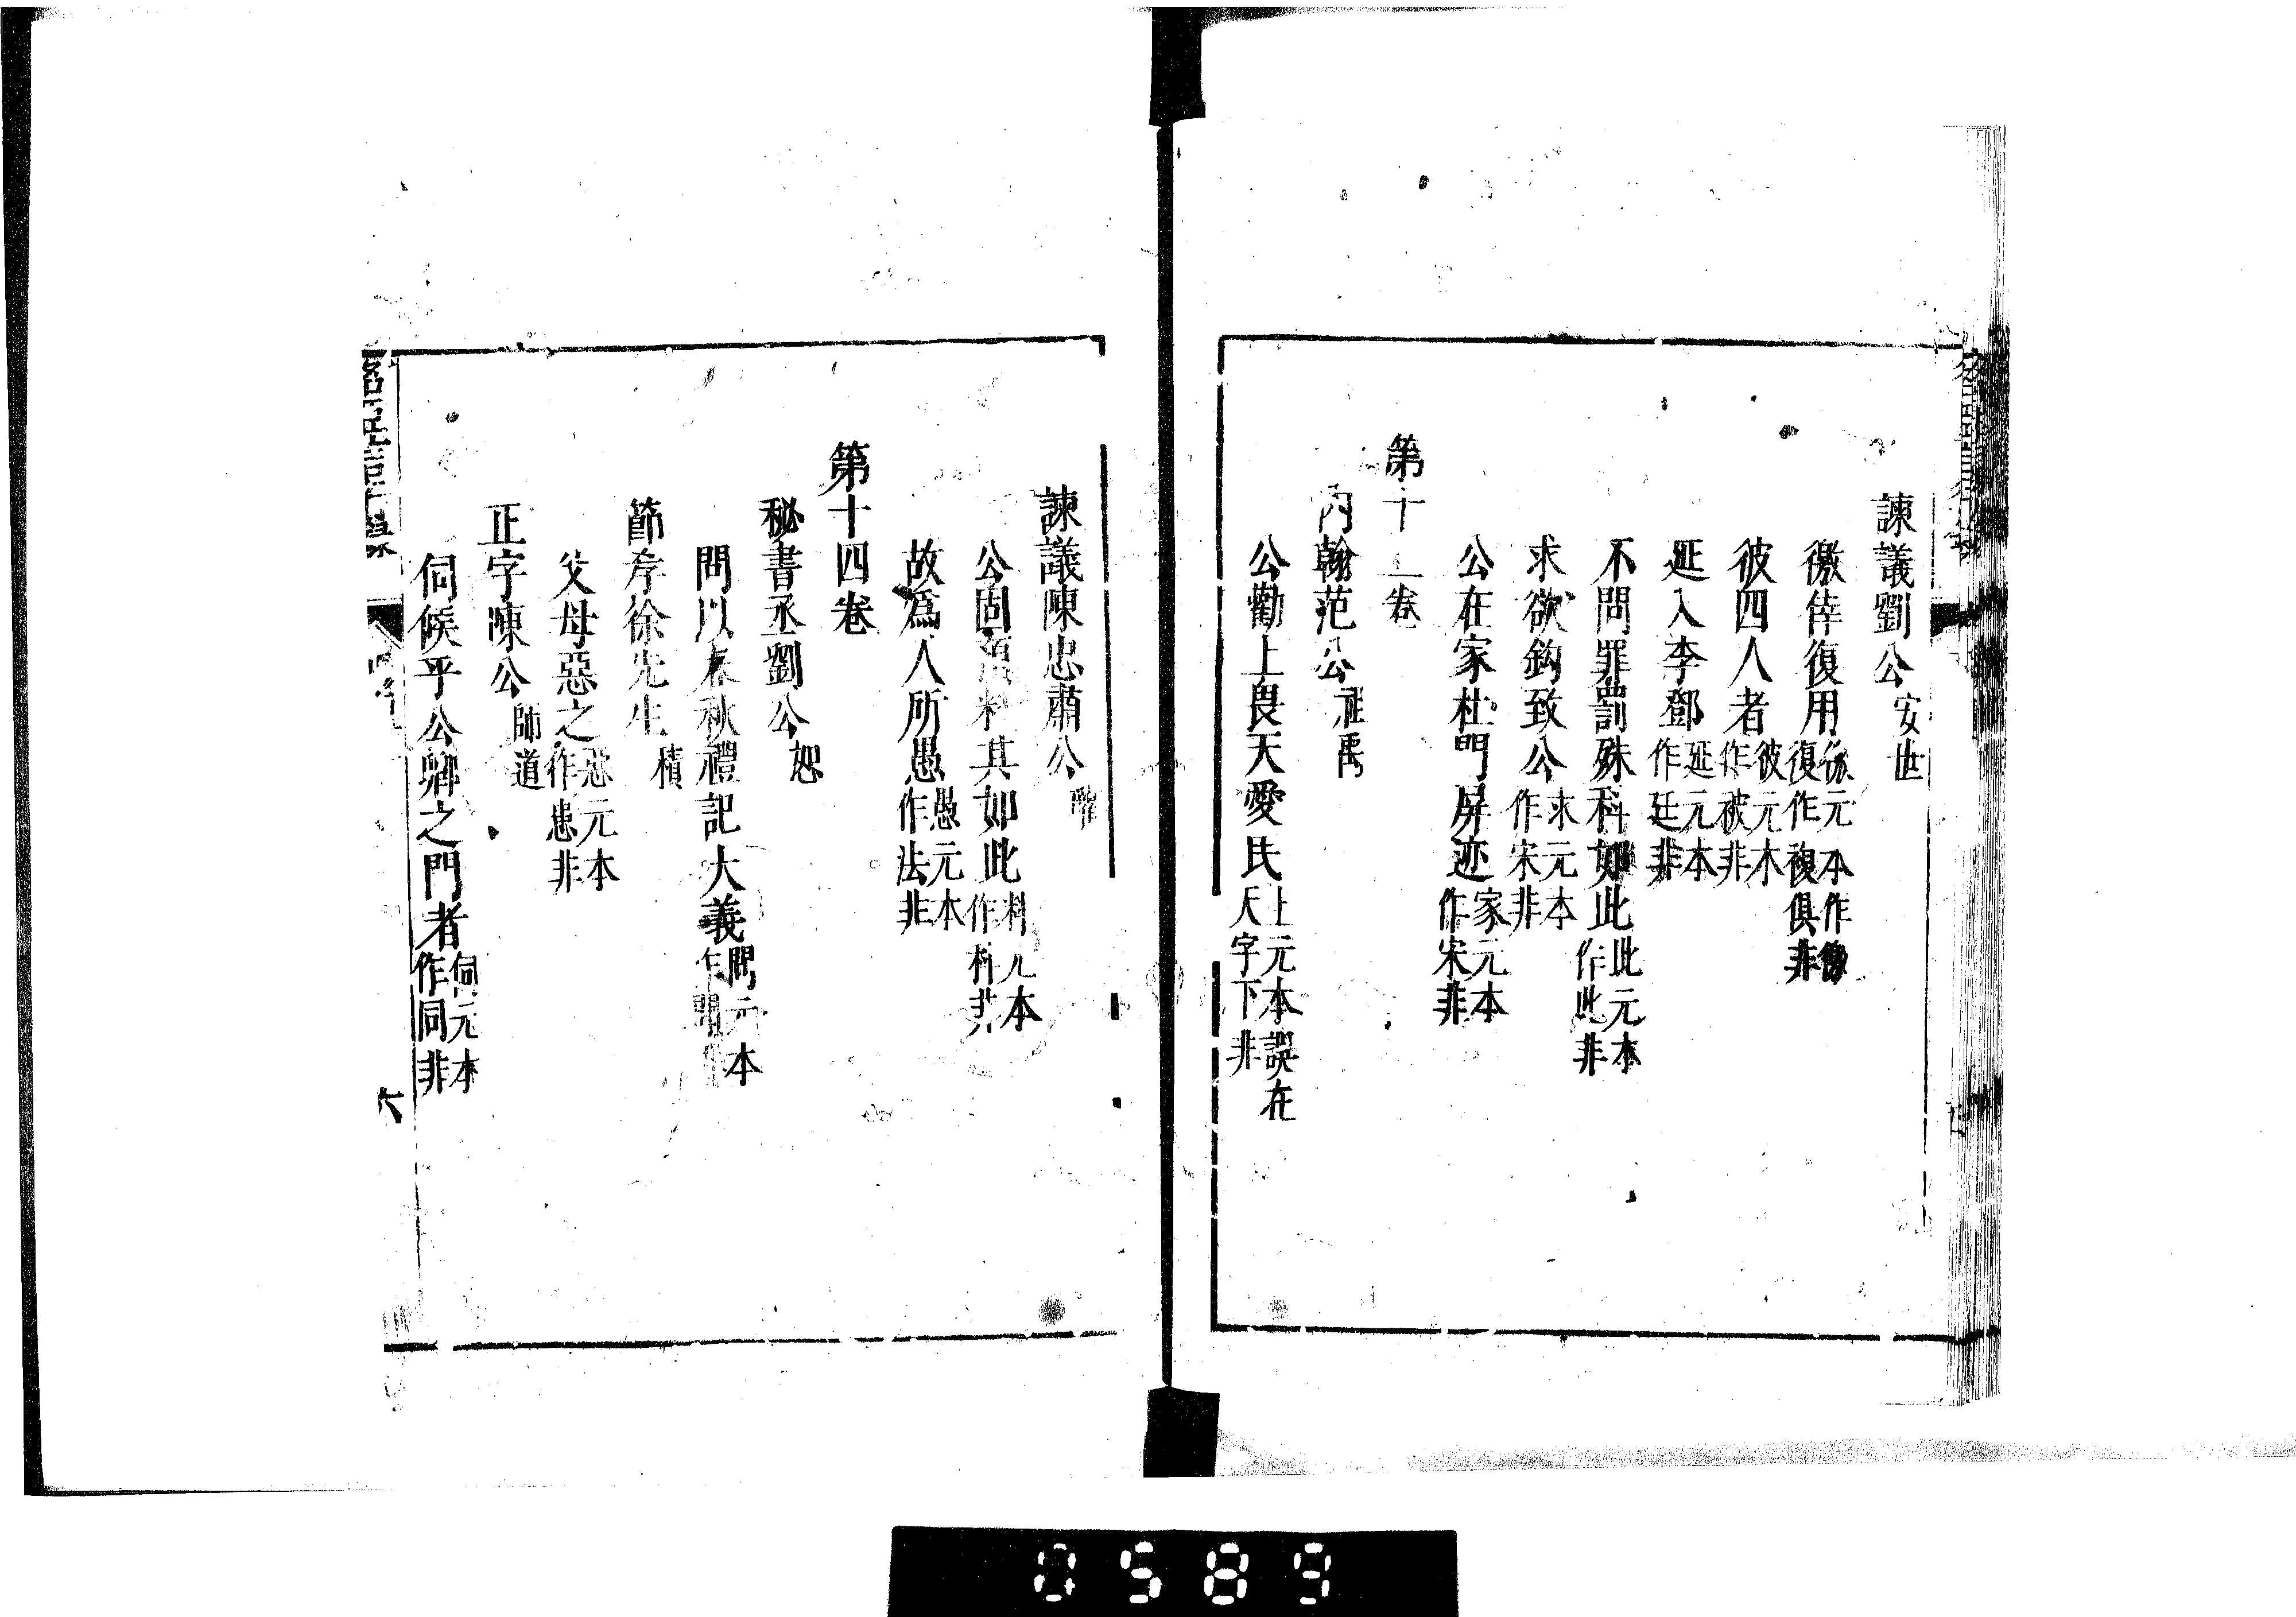 諫議劉公安世
徼倖復用依元本作像復作複俱非
彼四人者彼元本作被非
延入李鄧延元本作廷非
不問罪罰殊科如此此元本作此非
求欲鈎致公求元本作宋非
公在家杜門屏迹家元本作宋非
第十三卷
內翰范公祖禹
公勸上畏天愛民上元本誤在天字下非
諫議陳忠肅公瓘
公固預料其如此料元本作科非
故爲人所愚愚元本作法非
第十四卷
秘書丞劉公恕
問以春秋禮記大義問元本作間非
節孝徐先生積
父母惡之惡元本作患非
正字陳公師道
伺候乎公卿之門者伺元本作同非
六
0589